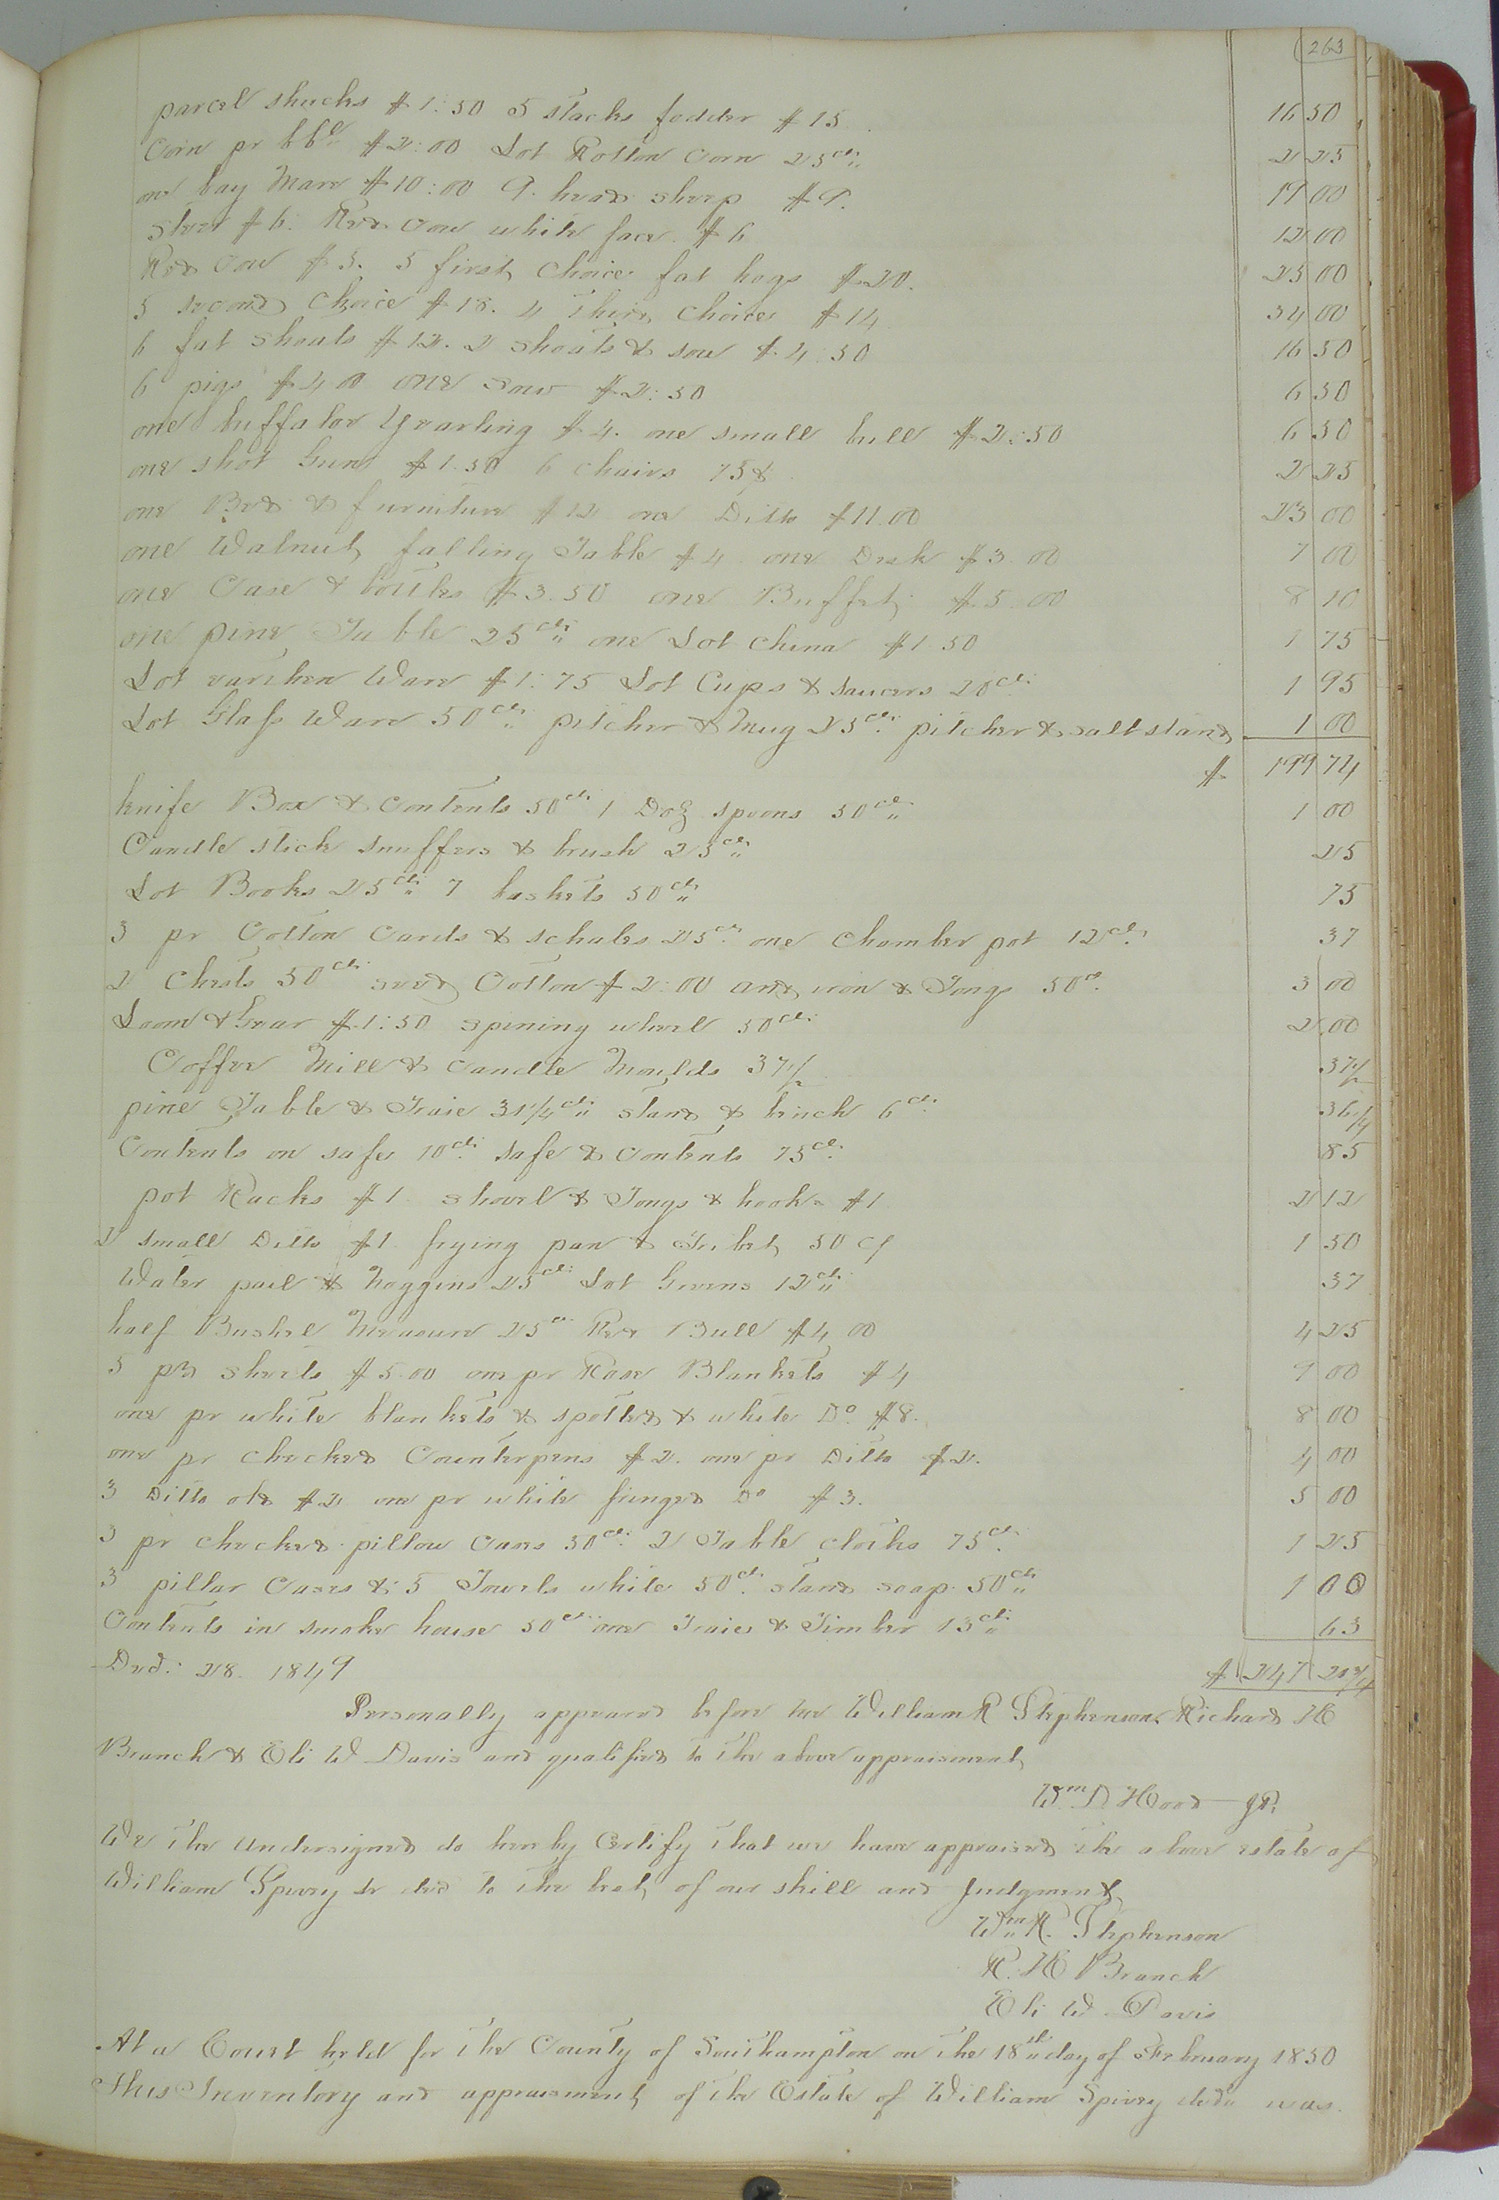 263
parcel shucks $1:50 5 stacks fodder $15. 16 50
Corn pr bbl $2:00 Lot Rotton Corn 25cts 2 25
one bay Mare $10:00 9 head sheep $9. 19 00
Steer $6. Red Cow white face $6 12 00
Red Cow $5. 5 first Choice fat hogs $20. 25 00
5 second Choice $18. 4 Third Choice $14 34 00
6 fat Shoats $12. 2 shoats & sow $4:50 16 50
6 pigs $4 00 one sow $2:50 6 50
one buffalor Yearling $4. one small bull $2:50 6 50
one shot Gun $1.50 6 chairs 75¢ 2 25
one Bed & furniture $12 one Ditto $11.00 23 00
one Walnut falling Table $4 one Desk $3.00 7 00
one Case & bottles $3.50 one Buffet $5.00 8 10
one pine Table 25cts one Lot China $1.50 1 75
Lot earthen Ware $1:75 Lot Cups & saucers 20cts 1 95
Lot Glass Ware 50cts pitcher & Mug 25cts pitcher & salt stand 1 00
$ 199 74
knife Box & Contents 50cts 1 Doz spoons 50cts 1 00
Candle stick snuffers & brush 25cts 25
Lot Books 25cts 7 baskets 50cts 75
3 pr Cotton Cards & schales 25cts one Chamber pot 12cts 37
2 Chests 50cts seed Cotton $2:00 and iron & Tongs 50cts 3 00
Loom & Gear $1:50 spining wheel 50cts 2 00
Coffee Mill & Candle Moulds 37½ 37½
pine Table & Traie 31¼cts stand & binch 6cts 36¼
Contents on safe 10cts safe & Contents 75cts 85
pot Racks $1 shovel & Tongs & hooks $1 2 12
2 small Ditto $1 frying pan & Tribet 50 cts 1 50
Water pail & Noggins 25cts Lot 12cts 37
half Bushel Measure 25cts Red Bull $4 00 4 25
5 pr sheets $5.00 one pr Rose Blankets $4 9 00
one pr white blankets & spotted & white Do $8. 8 00
one pr checked Counterpens $2. one pr Ditto $2. 4 00
3 Ditto old $2 one pr white fringed Do $3. 5 00
3 pr checked pillow Cases 50cts 2 Table cloths 75cts 1 25
3 pillar Cases & 5 Towels white 50cts stand soap 50cts 1 00
Contents in smoke house 50cts one Traies & Timber 13cts 63
Decd. 28 1849 $ 247 20¾
Personally appeared before me William R Stephenson, Richard H
Branch & Eli W Davis and qualified to the above appraisment
Wm D Hood JP.
We the Undersigned do hereby Certify that we have appraised the above estate of
William Spivey Sr decd to the best of our skill and Judgment
Wm R. Stephenson
R. H Branch
Eli W Davis
At a Court held for the County of Southampton on the 18th day of February 1850
This Inventory and appraisment of the Estate of William Spivey decd was